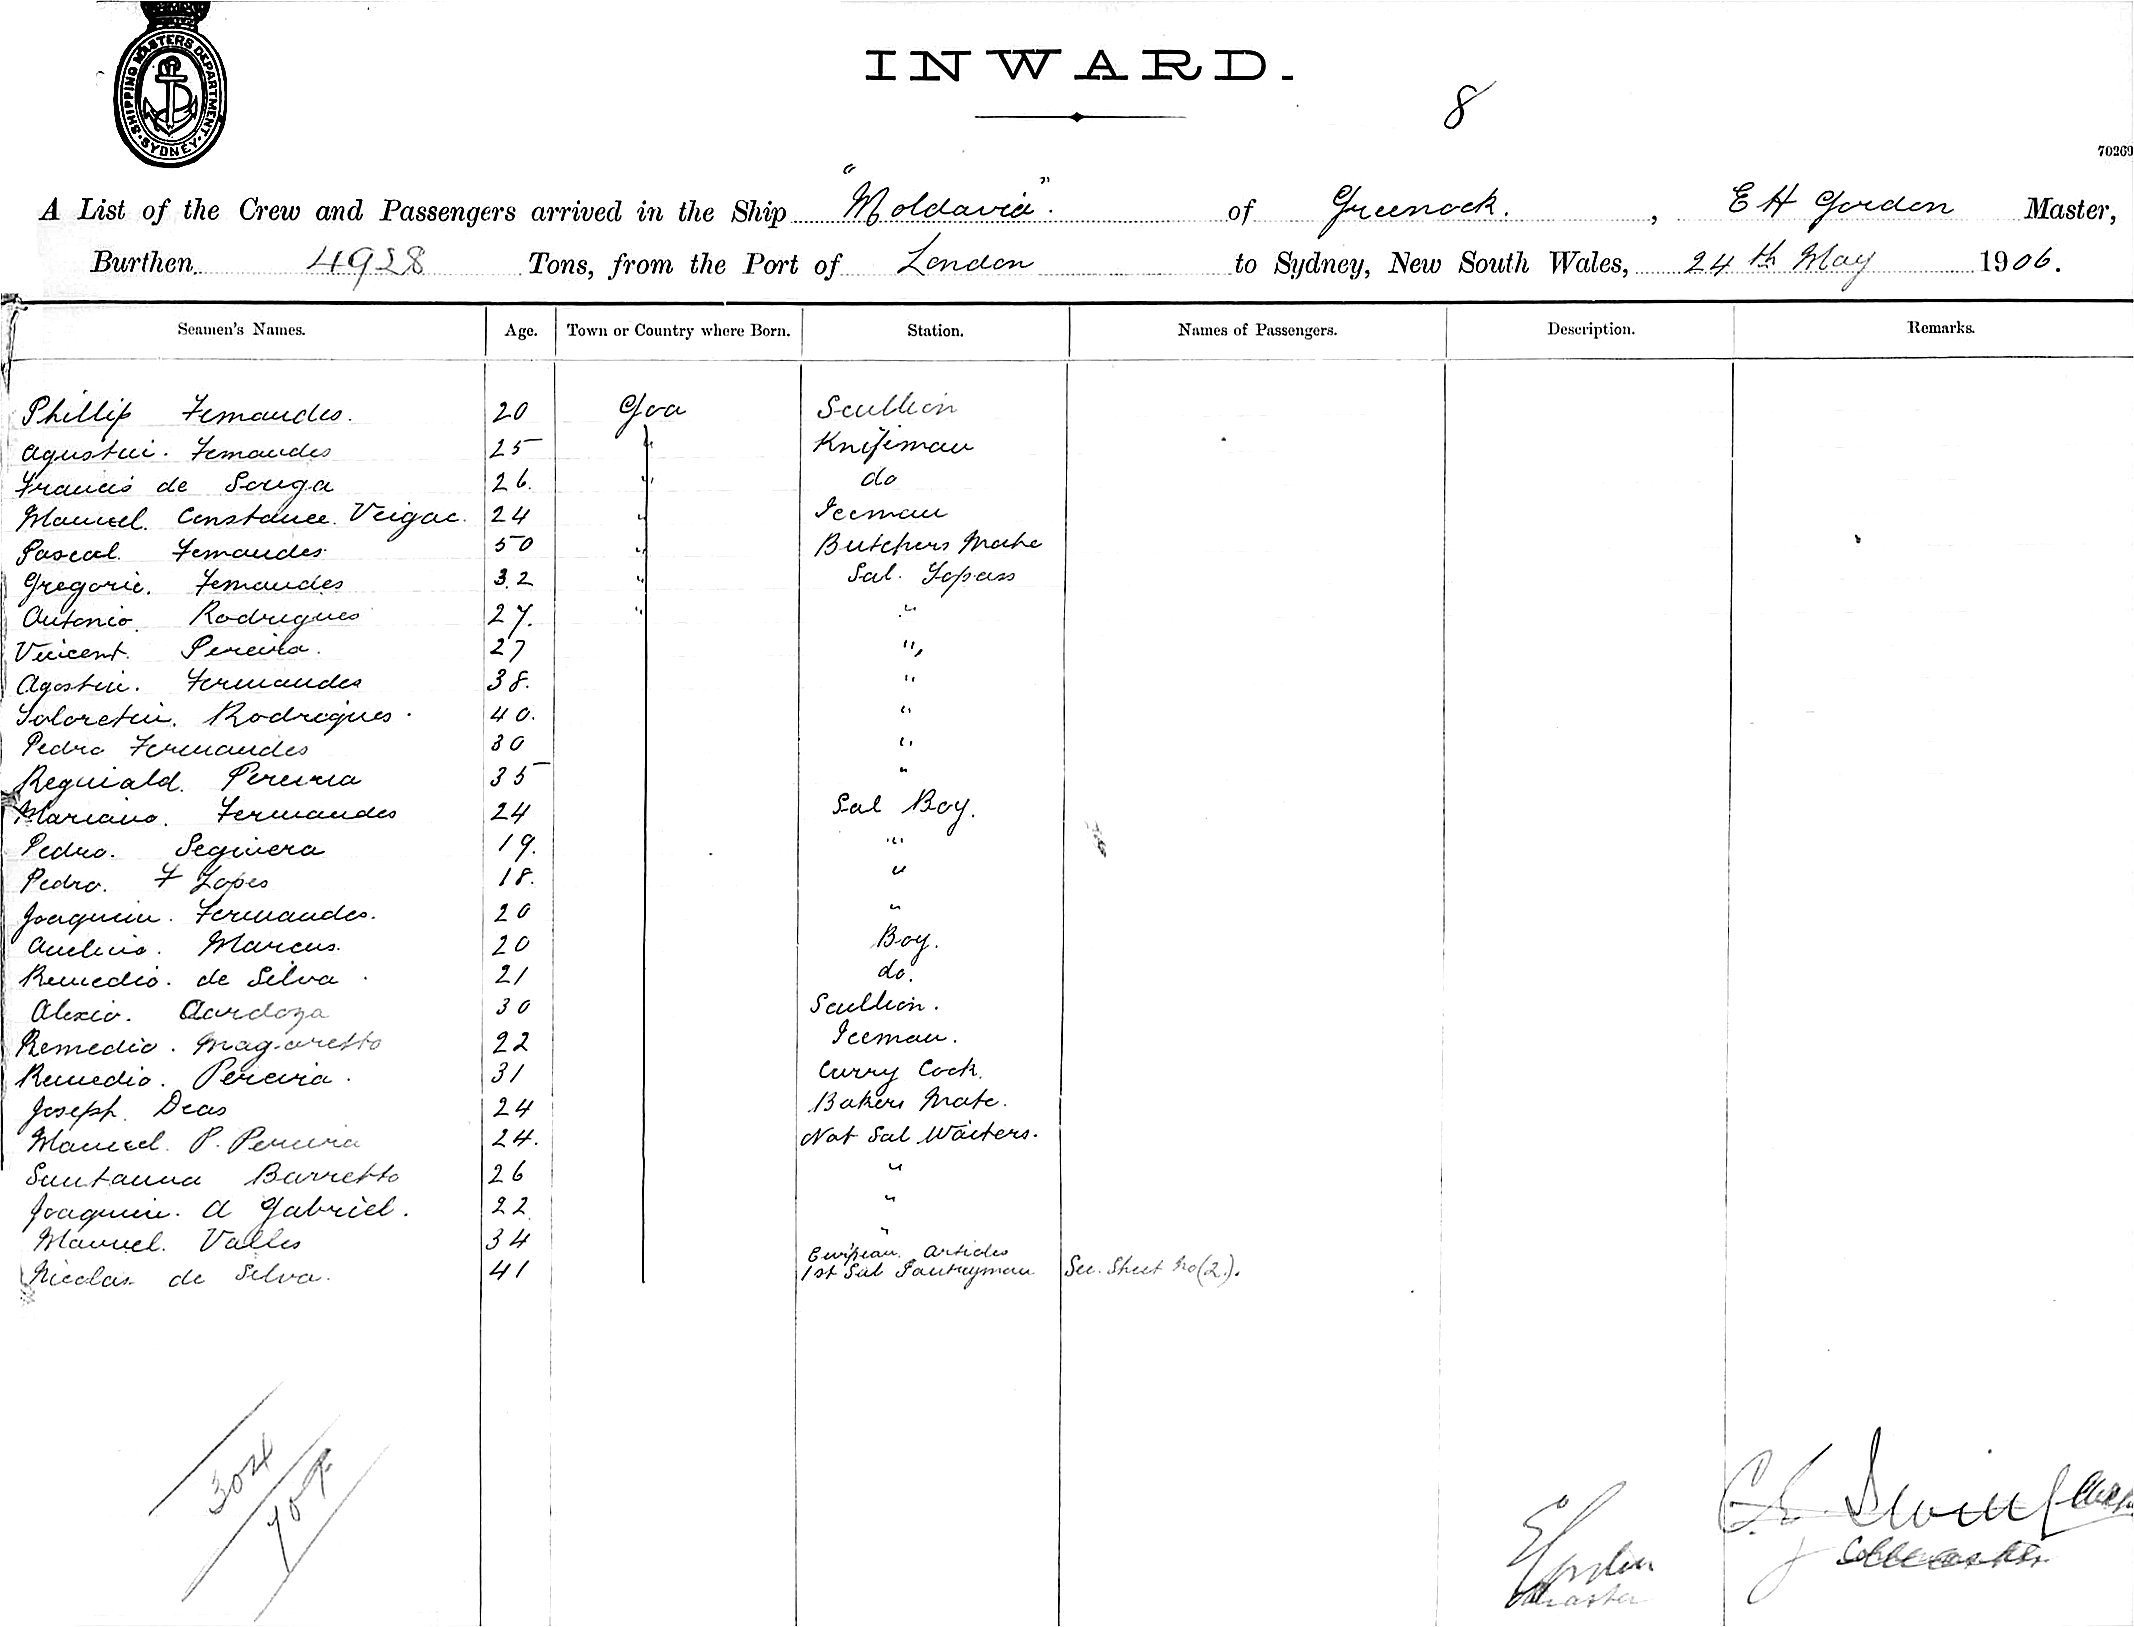 SHIPPING MASTERS DEPARTMENT · SYDNEY ·
INWARD.
8
70269
A List of the Crew and Passengers arrived in the Ship "Moldavia". of Greenock. , E H Gordon Master,
Burthen 4928 Tons, from the Port of London to Sydney, New South Wales, 24th May 1906.
Seamen's Names. Age. Town or Country where Born. Station. Names of Passengers. Description. Remarks.
Phillip Fernandes. 20 Goa Scullion
Agustin. Fernandes 25 " Knifeman
Francis de Souza 26. " do
Manuel. Constance. 24 " Iceman
Pascal. Fernandes 50 " Butchers Mate
Gregorio. Fernandes 32 " Sal. Topass
Antonio. Rodrigues 27. " "
Vincent. Pereira. 27 "
Agostin. Fernandes 38. "
Rodrigues. 40. "
Pedro Fernandes 30 "
Reginald. Pereira 35 "
Mariano. Fernandes 24 Sal Boy.
Pedro. 19. "
Pedro. F Lopes 18. "
Joaquim. Fernandes. 20 "
Marcus. 20 Boy.
Remedio. de Silva 21 do.
Alexio. Cardoza 30 Scullion.
Remedio. 22 Iceman.
Remedio. Pereira. 31 Curry Cook.
Joseph. Deas 24 Bakers Mate.
Manuel. P. Pereira 24. Nat Sal Waiters.
Santanna Barretto 26 "
Joaquim. A Gabriel. 22 "
Manuel. Valles 34 "
Articles
Nicolas de Silva. 41 1st Sal Pantryman See. Sheet No (2.).
304
Master